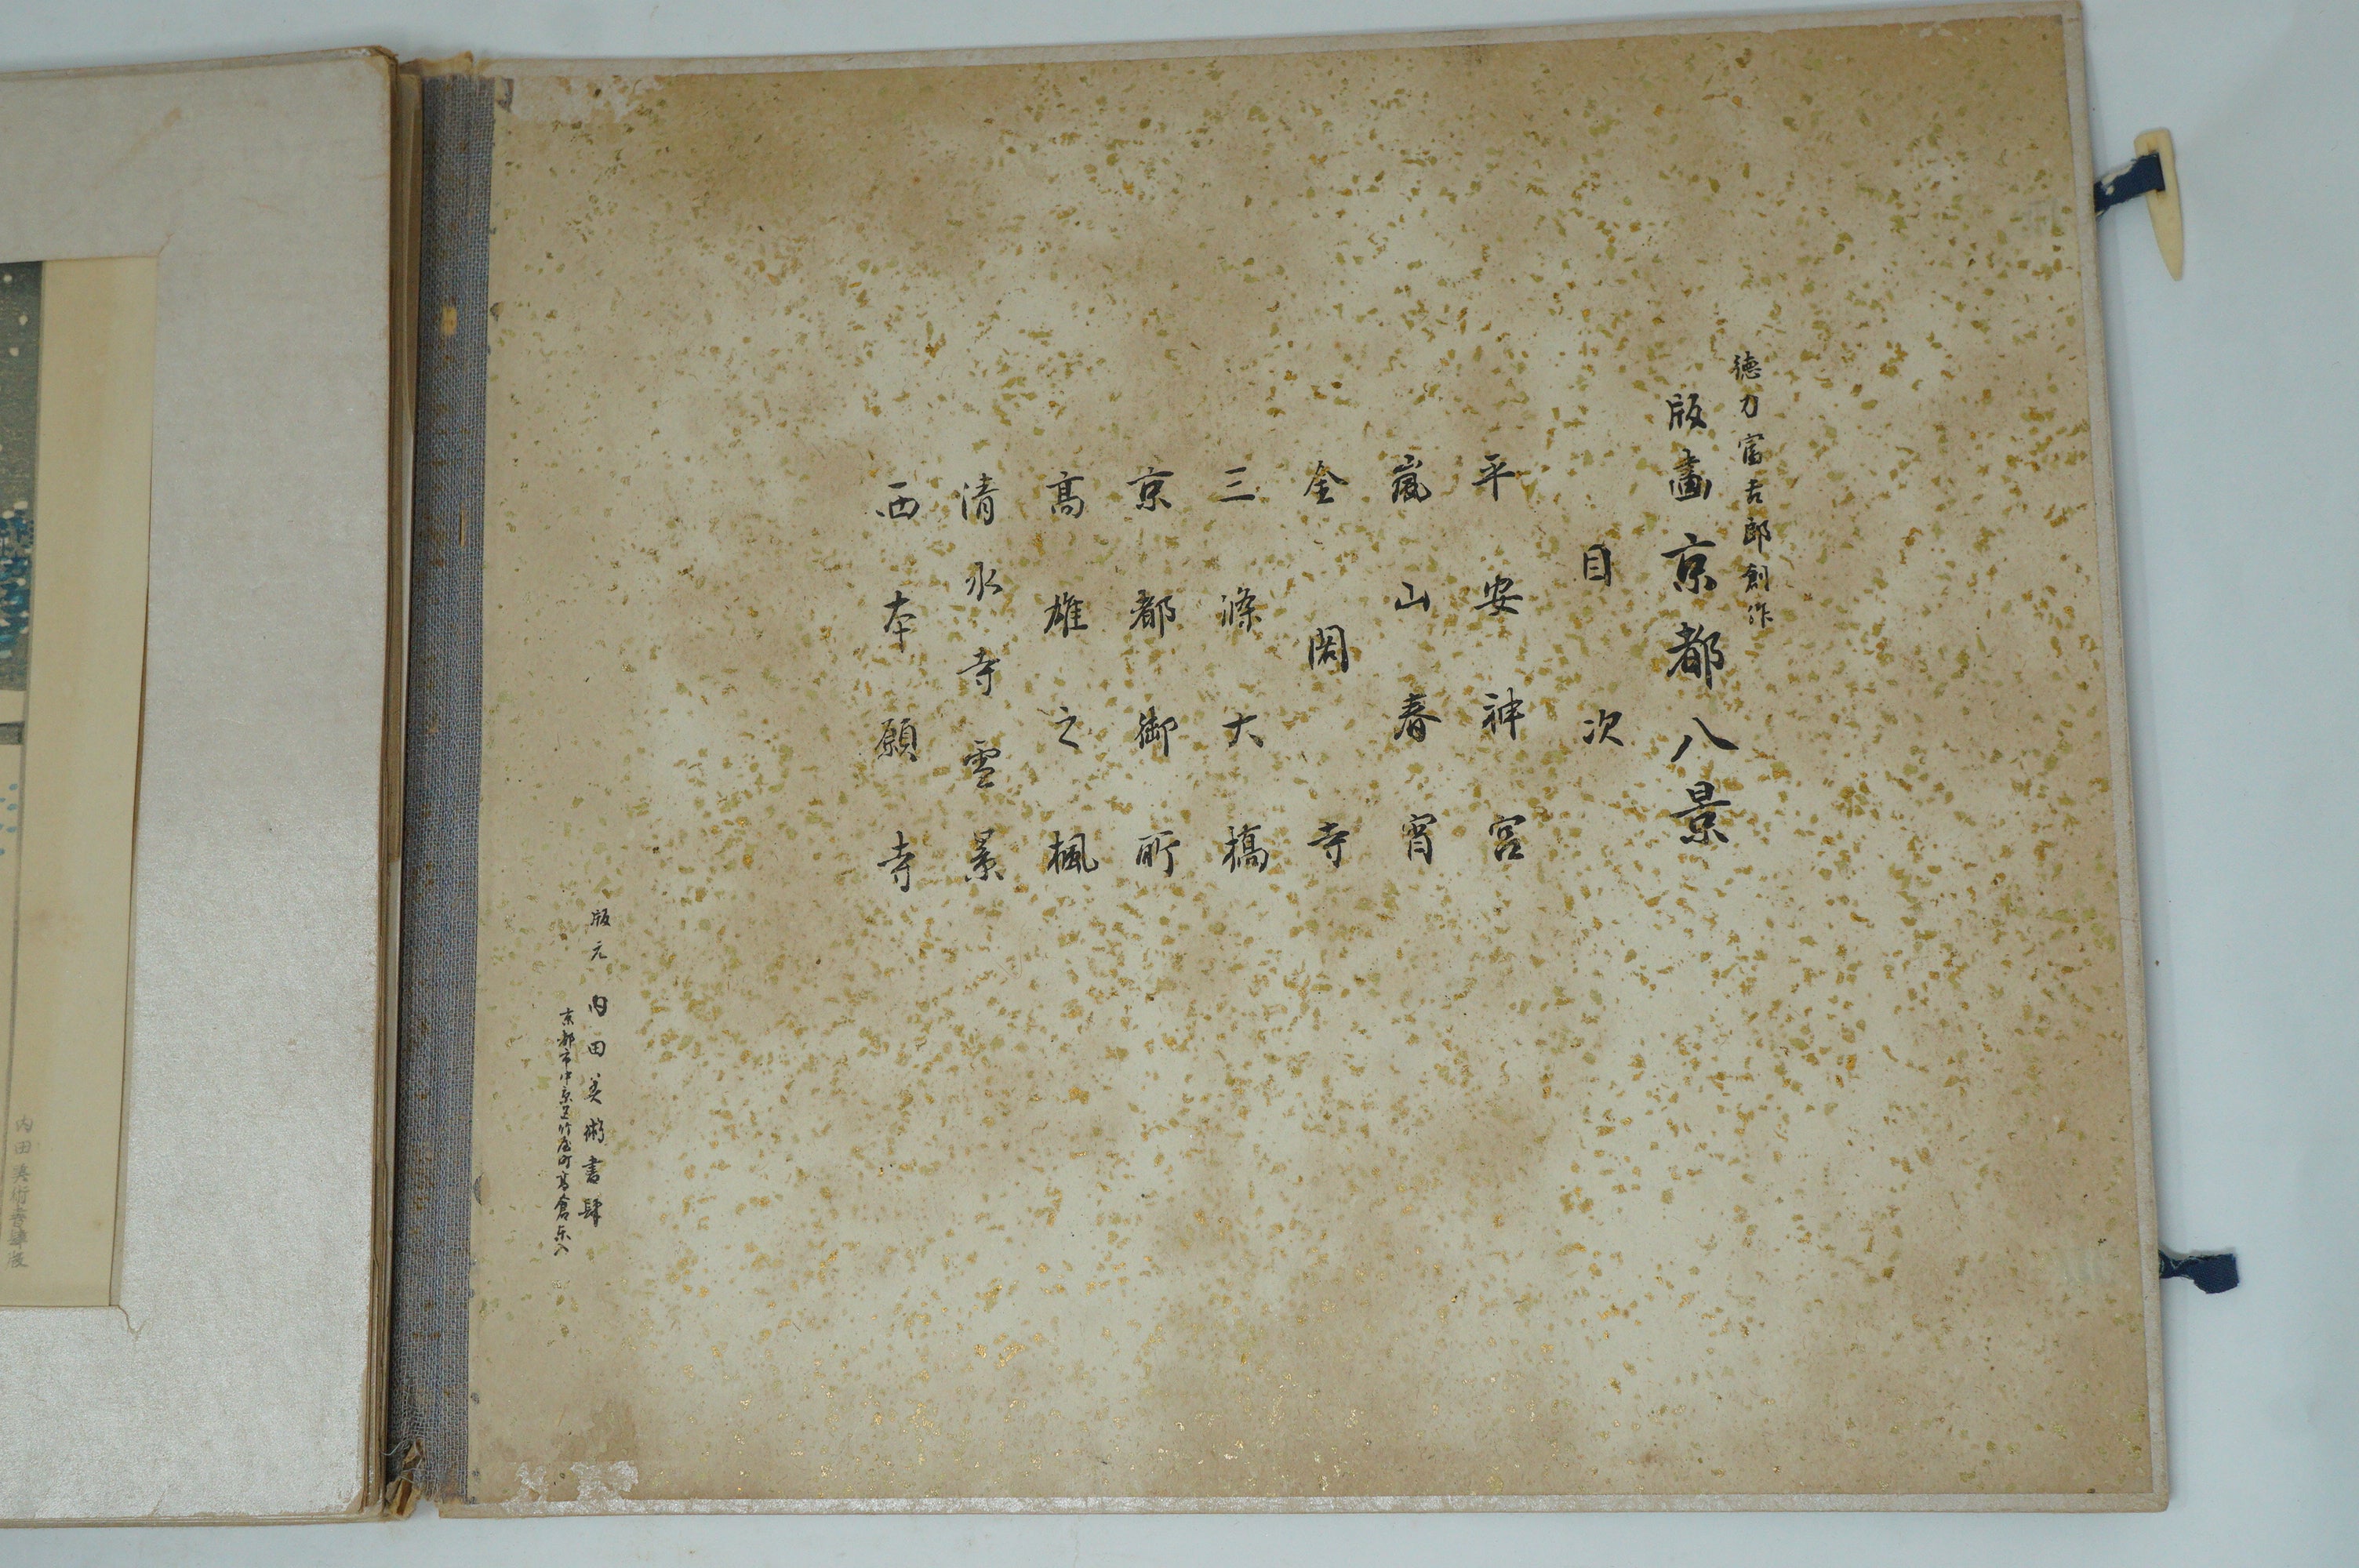 徳力富吉郎創作
版畫京都八景
目次
平安神宮
嵐山春宵
金閣寺
三條大橋
京都御所
髙雄之楓
清水寺雪景
西本願寺
版元 内田美術書肆
京都市中京区竹屋町高倉東入
内田美術書肆版